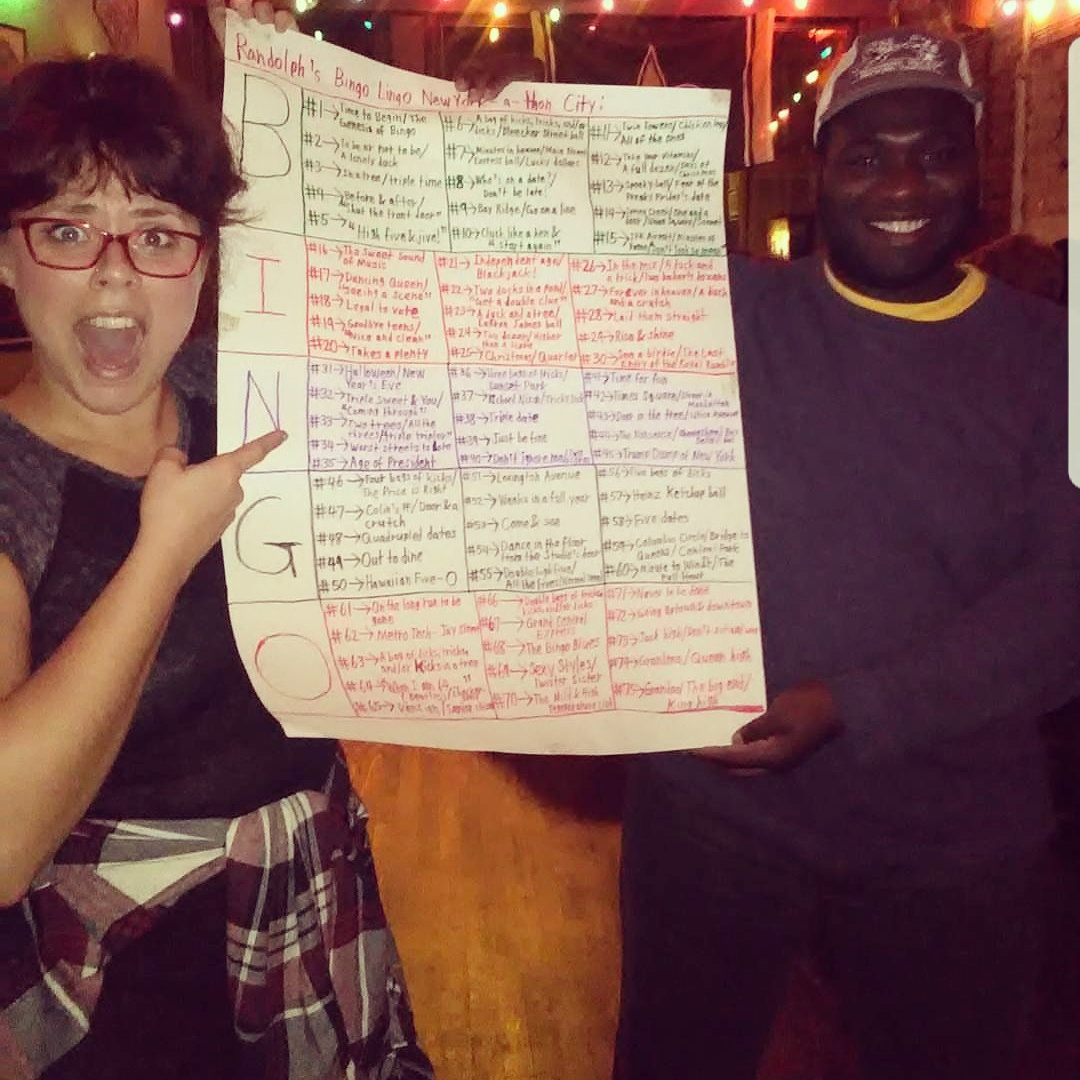 Randolph's Bingo Lingo New York-a-thon City:
B
#1→Time to Begin/The
Genesis of Bingo
#2→To be or not to be/
A lonely duck
#3→In a tree/triple time
#4→Before & after/
"Shut the front door"
#5→"High five & jive!"
#6→A bag of kicks, tricks, and/or
licks/Bleecker Street ball
#7→Minutes in heaven/
ball/Lucky dollars
#8→Who's on a date?/
Don't be late!
#9→Bay Ridge/Go on a line
#10→Cluck like a hen &
"start again"
#11→Twin Towers/Chicken legs/
All of the ones
#12→Take your vitamins/
A full dozen/Days of
Christmas
#13→Spooky ball/Fear of the
Freaks Friday's date
#14→
#15→
I
#16→The Sweet Sound
of Music
#17→Dancing Queen/
"Seeing a scene"
#18→Legal to vote
#19→Goodbye teens/
"Nice and clean"
#20→Takes a plenty
#21→Independent age/
Blackjack!
#22→Two ducks in a pond/
"Get a double clue"
#23→A duck and a tree/
LeBron James ball
#24→Two dozen/Higher
than a score
#25→Christmas/Quarter
#26→In the mix/A tuck and
a trick/Two bakers dozens
#27→Forever in heaven/A duck
and a crutch
#28→Laid them straight
#29→Rise & shine
#30→Seen a birdie/The Last
Entry of the Royal Rumble
N
#31→Halloween/New
Year's Eve
#32→Triple Sweet & You/
"Coming through"
#33→Two trees/All the
threes/"triple triplet"
#34→Worst streets to date
#35→Age of President
#36→Three bags of tricks/
Sunset Park
#37→Michael Nixon/
#38→Triple date
#39→Just be fine
#40→Don't ignore me
#41→Time for fun
#42→Times Square/Street in
Manhattan
#43→Door in the tree/Utica Avenue
#44→The Nuisance/
#45→Trump Dump of New York
G
#46→Four bags of kicks/
The Price is Right
#47→Colin's #/Door & a
crutch
#48→Quadrupled dates
#49→Out to dine
#50→Hawaiian Five-O
#51→Lexington Avenue
#52→Weeks in a full year
#53→Come & see
#54→Dance in the floor
from the Studio's door
#55→Double high five/
All the fives/
#56→Five bags of kicks
#57→Heinz Ketchup ball
#58→Five dates
#59→Columbus Circle/Bridge to
Queens/
#60→Minute to Win It/The
Full Hour
O
#61→On the long run to be
gone
#62→Metro Tech-Jay Street
#63→A box of licks, tricks
and/or kicks in a tree
#64→"When I am 64"/
#65→
#66→Double bags of tricks
kicks and/or licks
#67→Grand Central
Express
#68→The Bingo Blues
#69→Sexy Styles/
Twister Sister
#70→The Mild & High
Temperature
#71→Never to be done
#72→Going uptown & downtown
#73→Jack high/
#74→Grandma/Queen high
#75→Grandpa/The big end/
King high